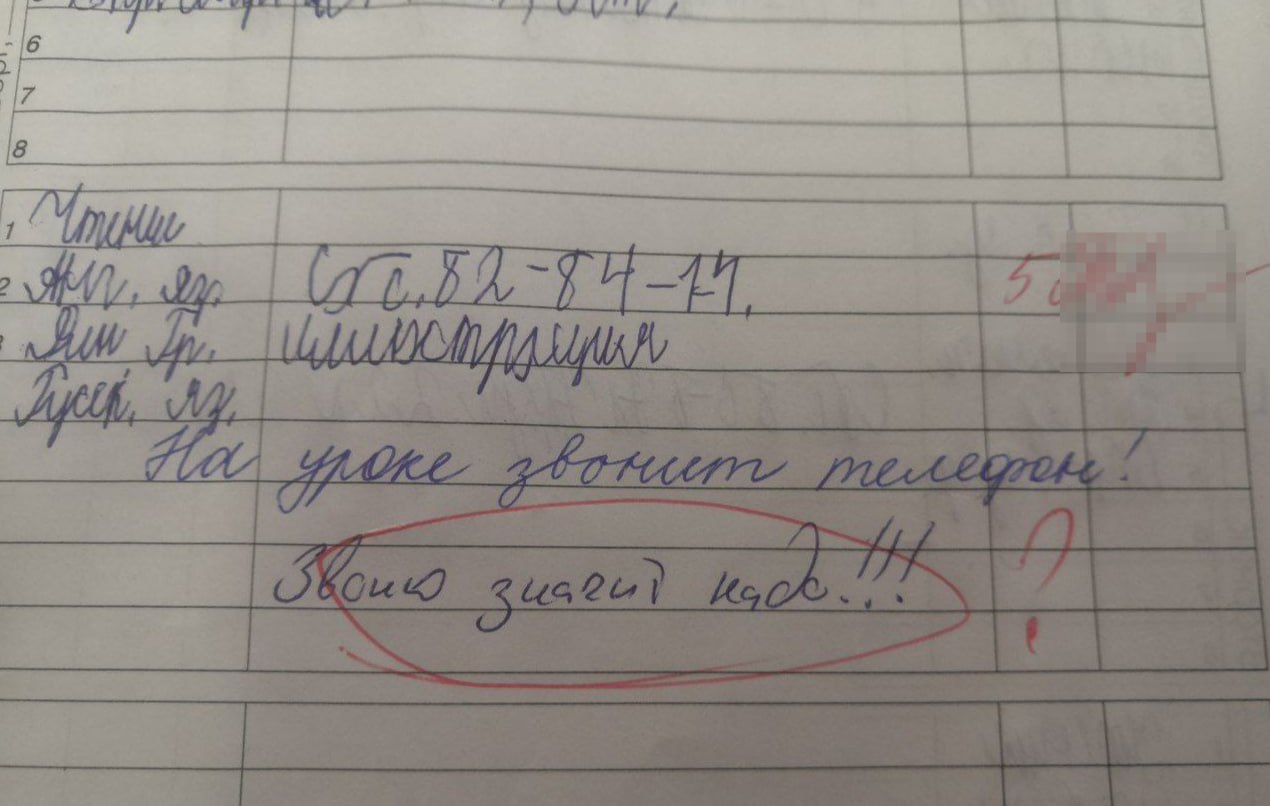 6
7
8
1 Чтение
2 Анг. яз. Стс. 82-84-14. 5
Лит. Гр. иллюстрация
Русск. яз.
На уроке звонит телефон!
Звоню значит надо!!!
?